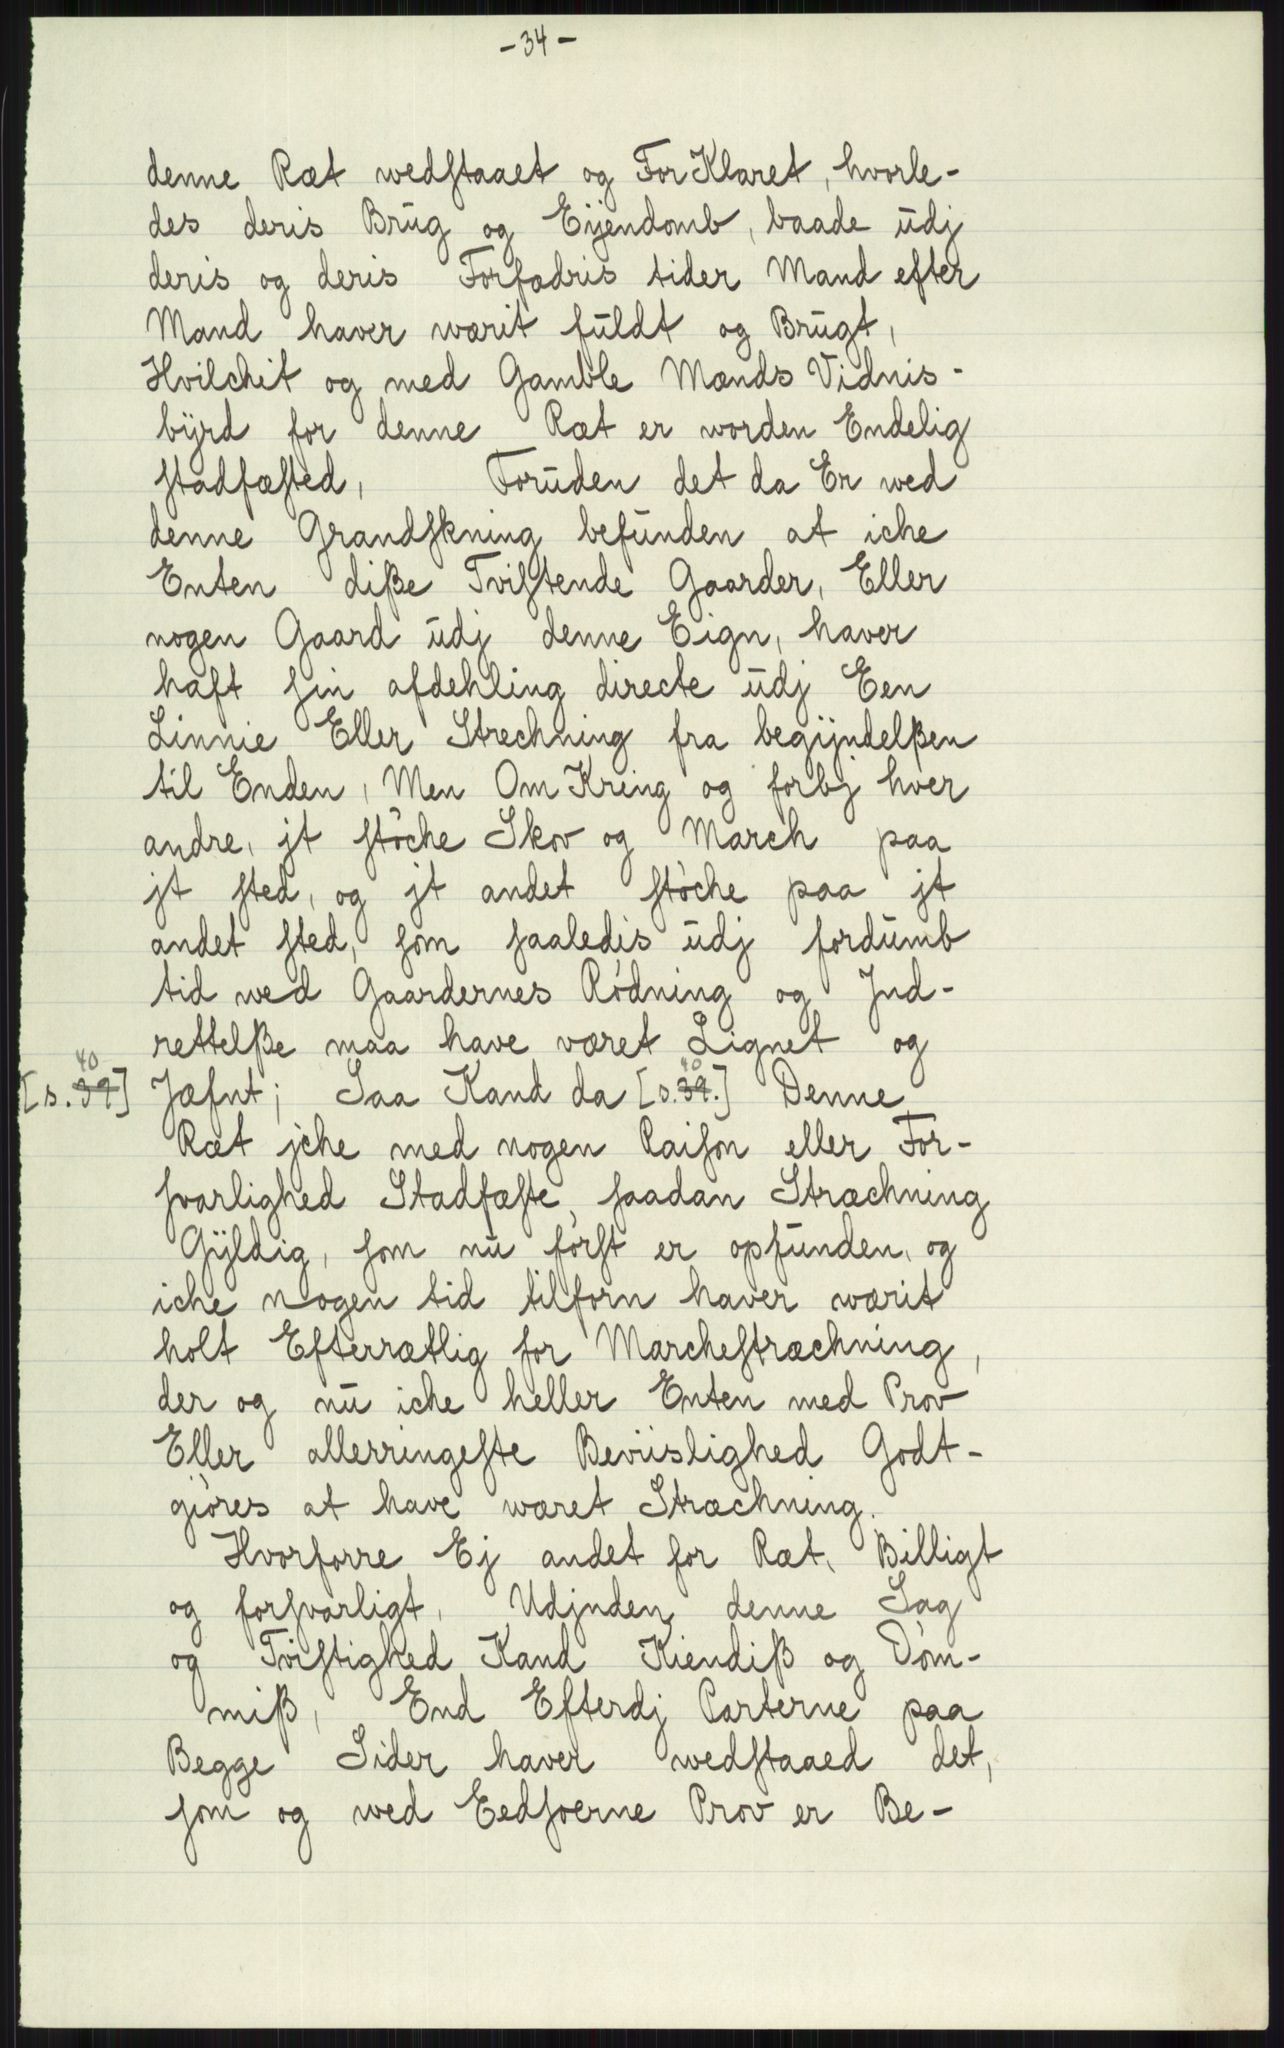 - 34 -
denne Ræt wedstaaet og ForKlaret, hvorle-
des deris Brūg og Eijendomb, baade ūdj
deris og deris Forfædris tider Mand efter
Mand haver wærit fūldt og Brūgt,
Hvilchit og med Gamble Mænds Vidnis-
bÿrd for denne Ræt er worden Endelig
stadfæsted, Forūden det da Er wed
denne Grandskning befūnden at iche
Enten diße Tvistende Gaarder, Eller
nogen Gaard ūdj denne Eign, haver
haft sin afdehling directe ūdj Een
Linnie Eller Strechning fra begÿndelßen
til Enden, Men OmKring og forbj hver
andre, jt støche Skov og March paa
jt sted, og jt andet støche paa jt
andet sted, som saaledis ūdj fordūmb
tid wed Gaardernes Rødning og Jnd-
rettelße maa have været Lignet og
[s. 39 40] Jæfnt; Saa Kand da [s. 39. 40] Denne
Ræt jche med nogen Raison eller For-
svarlighed Stadfæste, saadan Stræchning
Gÿldig, som nū først er opfūnden, og
iche nogen tid tilforn haver wærit
holt Efterrætlig for Marchestræchning,
der og nū iche heller Enten med Prov
Eller allerringeste Beviislighed Godt-
giøres at have wæret Stræchning.
Hvorforre Ej andet for Ræt, Billigt
og forsvarligt, Udjnden denne Sag
og Tvistighed Kand Kiendiß og Døm-
miß, End Efterdj Parterne paa
Begge Sider haver wedstaaed det,
som og wed Eedsoerne Prov er Be-